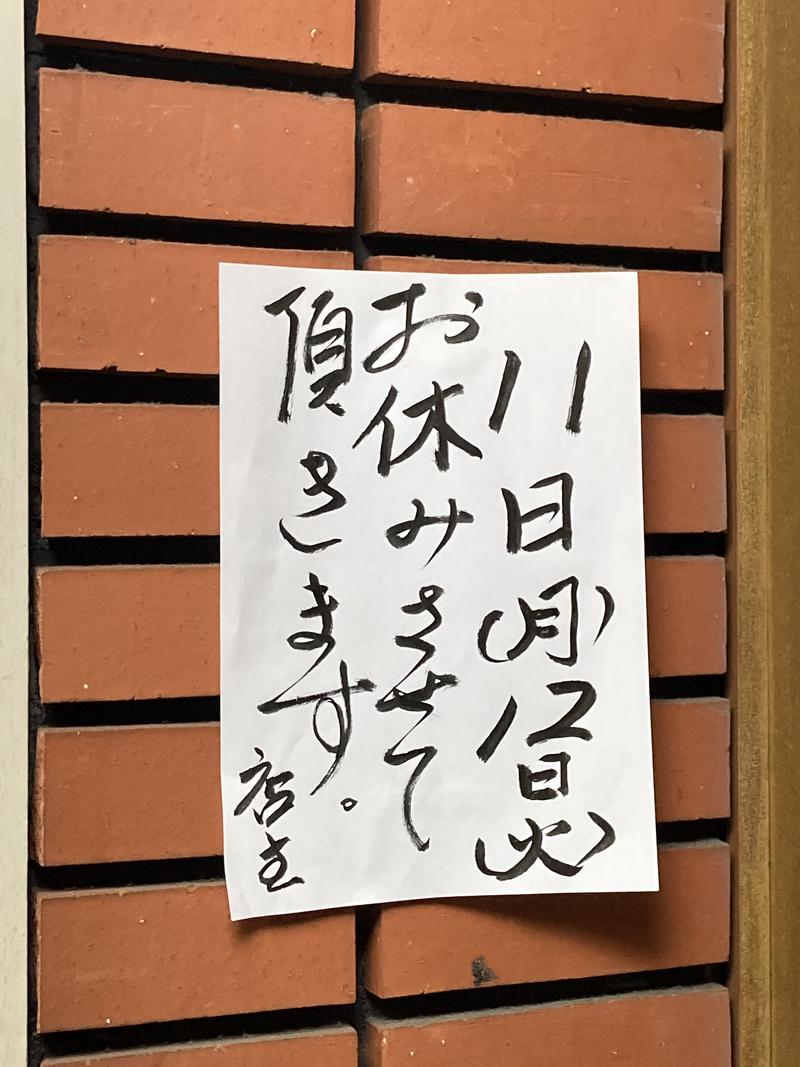 11日(月)12日(火)
お休みさせて
頂きます。
店主